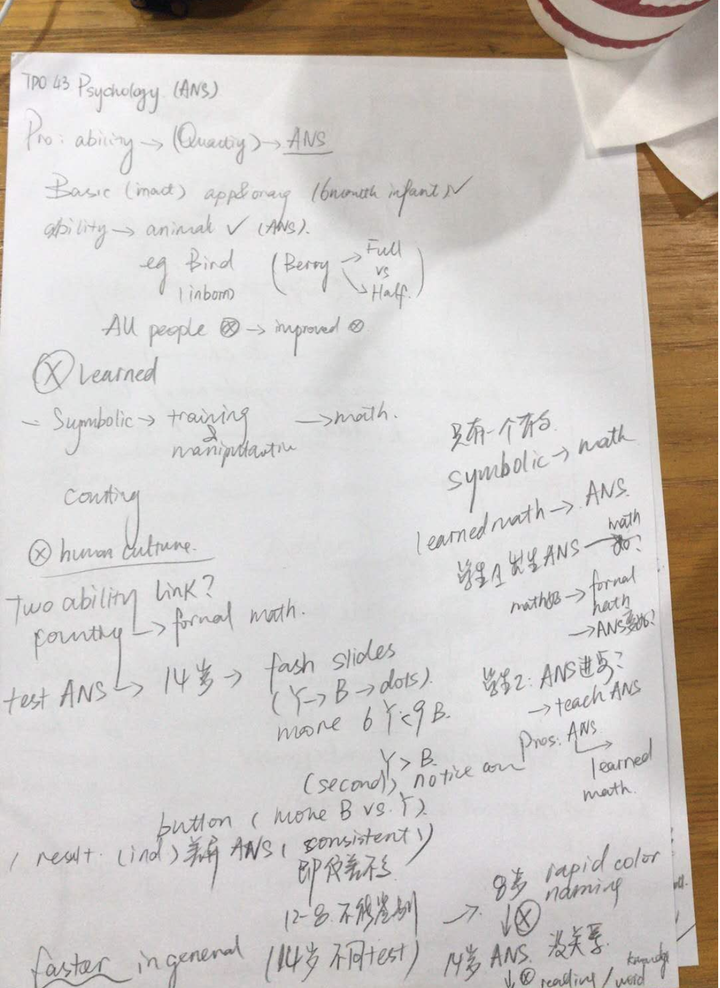 TPO 43 Psychology (ANS)
Pro: ability → (Quactiy) → ANS
Basic (inact) (6 month infant) ✓
ability → animal ✓ (ANS).
eg Bird (Berry → Full
vs
(inborn) ↘ Half.)
All people ⊗ → improved ⊗
ⓧ Learned
– Symbolic → training → math.
&
couting
⊗ human culture.
Two ability link?
↳ formal math.
test ANS ↳ 14岁 → fash slides
(Y → B → dots).
more 6 Y 9 B.
Y > B.
(second) notice
button (more B vs. Y).
result. (ind) 差异 ANS (consistent)
即使差不多
12-8. 不能鉴别
faster in general (14岁 不同test)
只有一个有的
symbolic → math
learned math → ANS.
学生1 先生 ANS → math
math → formal
math
→ ANS
学生2: ANS 进步?
→ teach ANS
Pros: ANS
↳ learned
math.
→ 8岁 rapid color
naming
↓ⓧ
14岁 ANS. 没关系.
knowledge
↓ⓧ reading / word